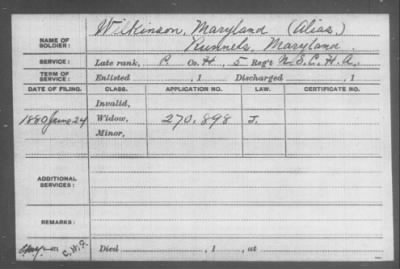 NAME OF SOLDIER: Wilkinson, Maryland (Alias)
Runnels, Maryland.
SERVICE: Late rank, P. Co. H, 5 Reg't U.S.C.H.A.
TERM OF SERVICE: Enlisted , 1 Discharged , 1
DATE OF FILING. CLASS. APPLICATION NO. LAW. CERTIFICATE NO.
Invalid,
1880 June 24 Widow, 270.898 J.
Minor,
ADDITIONAL SERVICES:
REMARKS:
Died , 1 , at